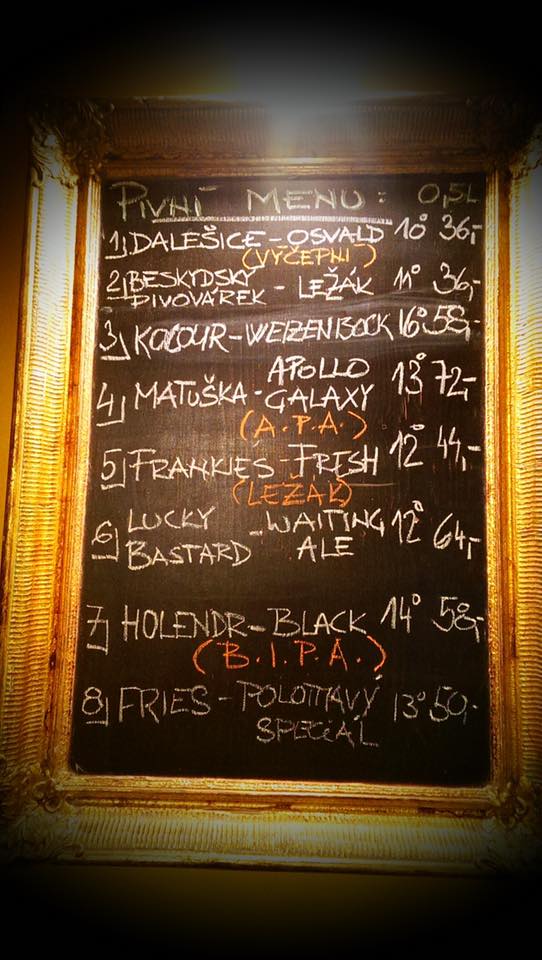 PIVNÍ MENU: 0,5L
1) DALEŠICE - OSVALD 10° 36,-
(VÝČEPNÍ)
2) BESKYDSKÝ PIVOVÁREK - LEŽÁK 11° 36,-
3) KOCOUR - WEIZENBOCK 16° 58,-
4) MATUŠKA - APOLLO GALAXY 13° 72,-
(A.P.A.)
5) FRANKIES - FRESH 12° 44,-
(LEŽÁK)
6) LUCKY BASTARD - WAITING ALE 12° 64,-
7) HOLENDR - BLACK 14° 58,-
(B.I.P.A.)
8) FRIES - POLOTMAVÝ SPECIÁL 13° 50,-